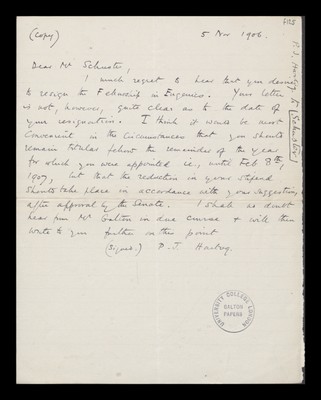 (Copy) 5 Nov 1906.
Dear Mr Schuster,
I much regret to hear that you desire
to resign the Fellowship in Eugenics. Your letter
is not, however, quite clear as to the date of
your resignation. I think it would be most
convenient in the circumstances that you should
remain titular fellow the remainder of the year
for which you were appointed i.e., until Feb 8th,
1907, but that the reduction in your stipend
should take place in accordance with your suggestion,
after approval by the Senate. I shall no doubt
hear from Mr Galton in due course & will then
write to you further on this point
(Signed.) P. J. Hartog.
P. J. Hartog to Schuster
UNIVERSITY COLLEGE LONDON
GALTON
PAPERS